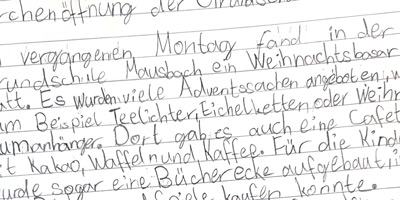 rchenöffnung der
vergangenen Montag fand in der
rundschule Mausbach ein Weihnachtsbasar
att. Es wurden viele Adventssachen angeboten, w
um Beispiel Teelichter, Eichelketten oder Weihn
umanhänger. Dort gab es auch eine Cafet
it Kakao, Waffeln und Kaffee. Für die Kinde
urde sogar eine Bücherecke aufgebaut, i
kaufen konnte.